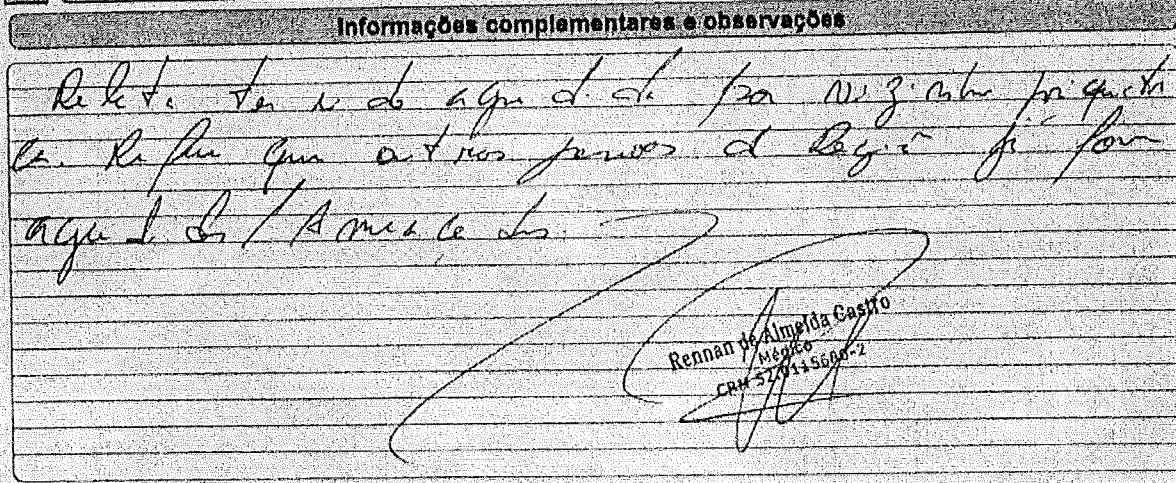 Informações complementares e observações
Relata ter sido agredida por vizinho psiquiátri
co. Refere que outras pessoas da Região já foram
agredidos / Ameaçados.
Rennan de Almeida Castro
Médico
CRM 52.0115680-2